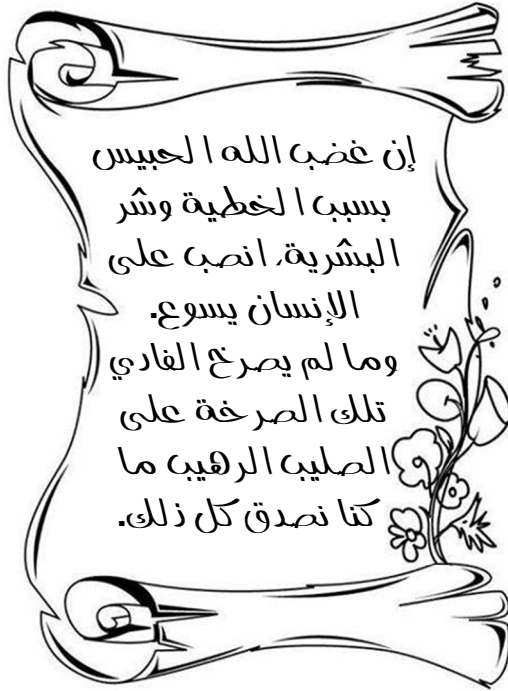 إن غضب الله الحبيس
بسبب الخطية وشر
البشرية، انصب على
الإنسان يسوع.
وما لم يصرخ الفادي
تلك الصرخة على
الصليب الرهيب ما
كنا نصدق كل ذلك.